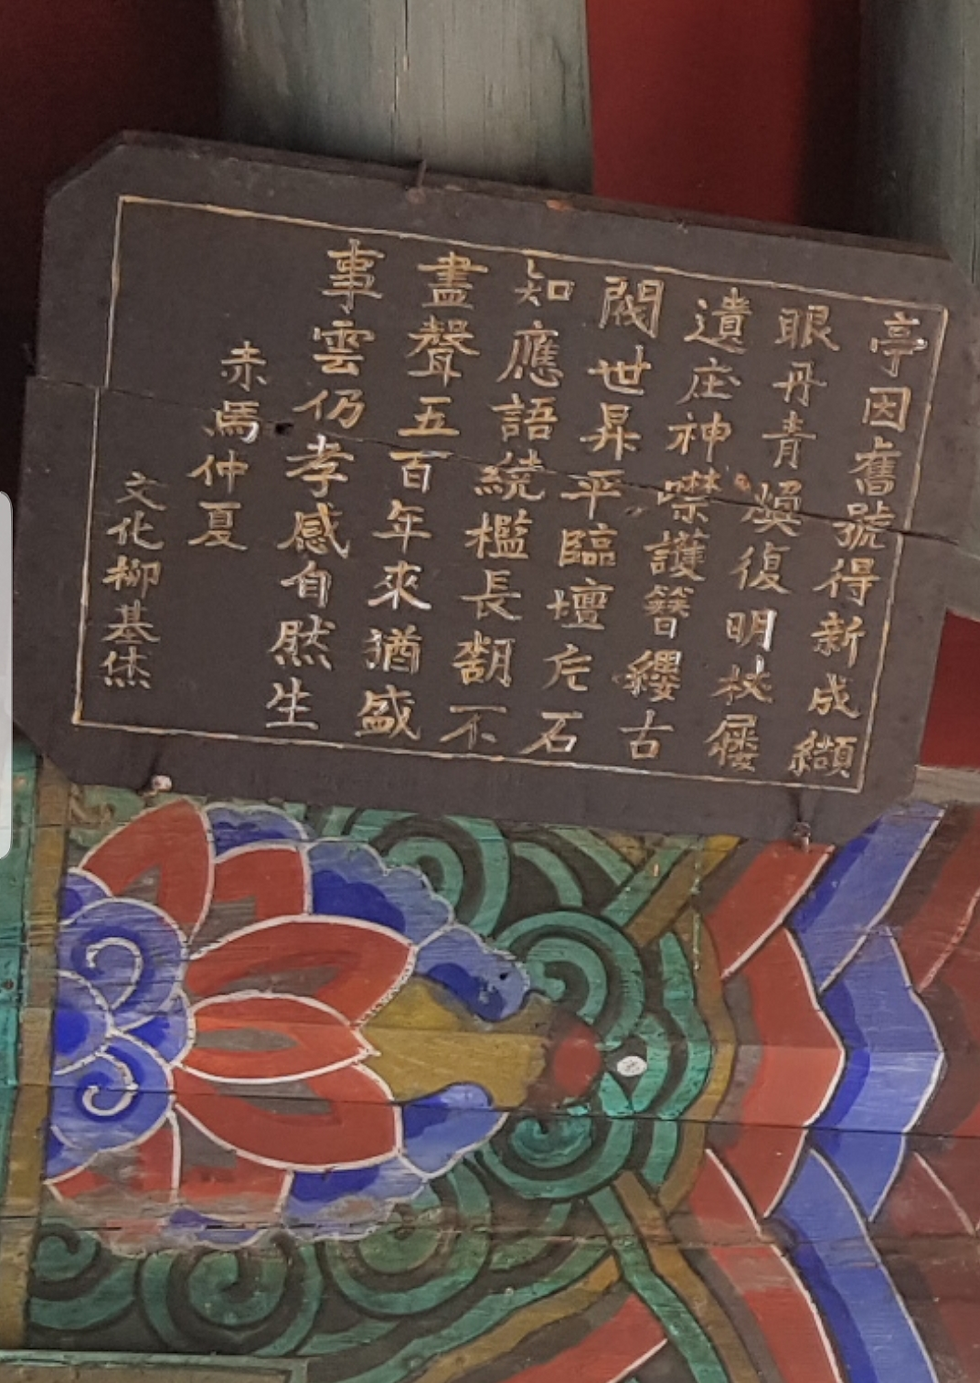 亭因舊號得新成纈
眼丹青煥復明杖屨
遺庄神噤護簪纓古
閥世昇平臨壇危石
知應語繞檻長湖不
盡聲五百年來猶盛
事雲仍孝感自然生
赤馬仲夏
文化柳基烋